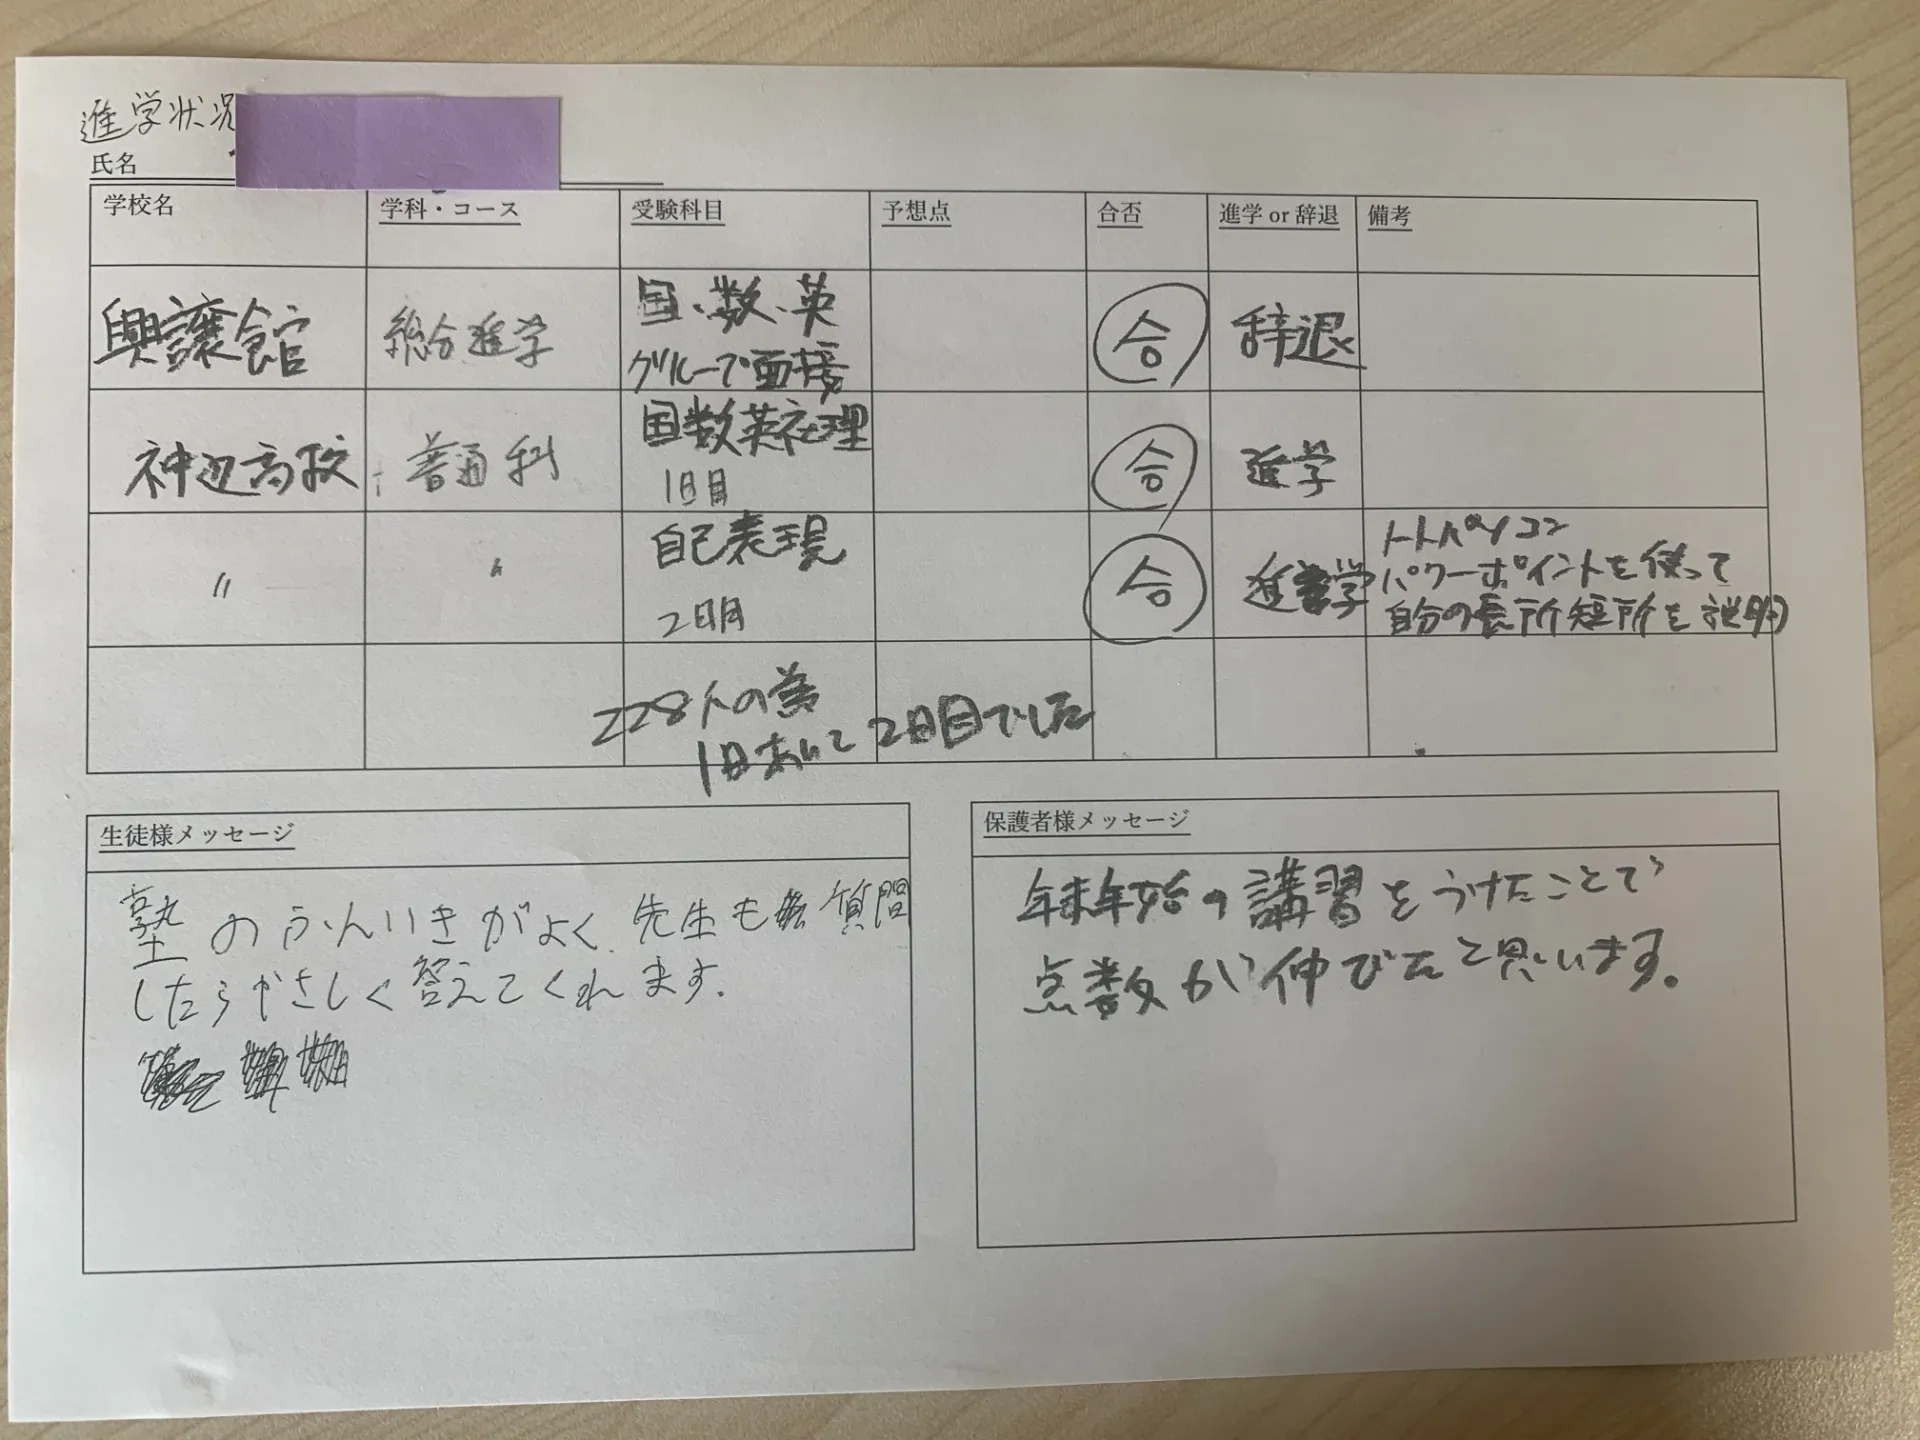 進学状況
氏名
学校名 学科・コース 受験科目 予想点 合否 進学 or 辞退 備考
興譲館 総合進学 国、数、英 合 辞退
グループ面接
神辺高校 普通科 国数英社理 合 進学
1日目
〃 〃 自己表現 合 進学
2日目
パソコン
パワーポイントを使って
自分の長所短所を説明
228人の為
1日あいて2日目でした
生徒様メッセージ
塾のふんいきがよく、先生も質問
したらやさしく答えてくれます。
保護者様メッセージ
年末年始の講習をうけたことで
点数が伸びたと思います。